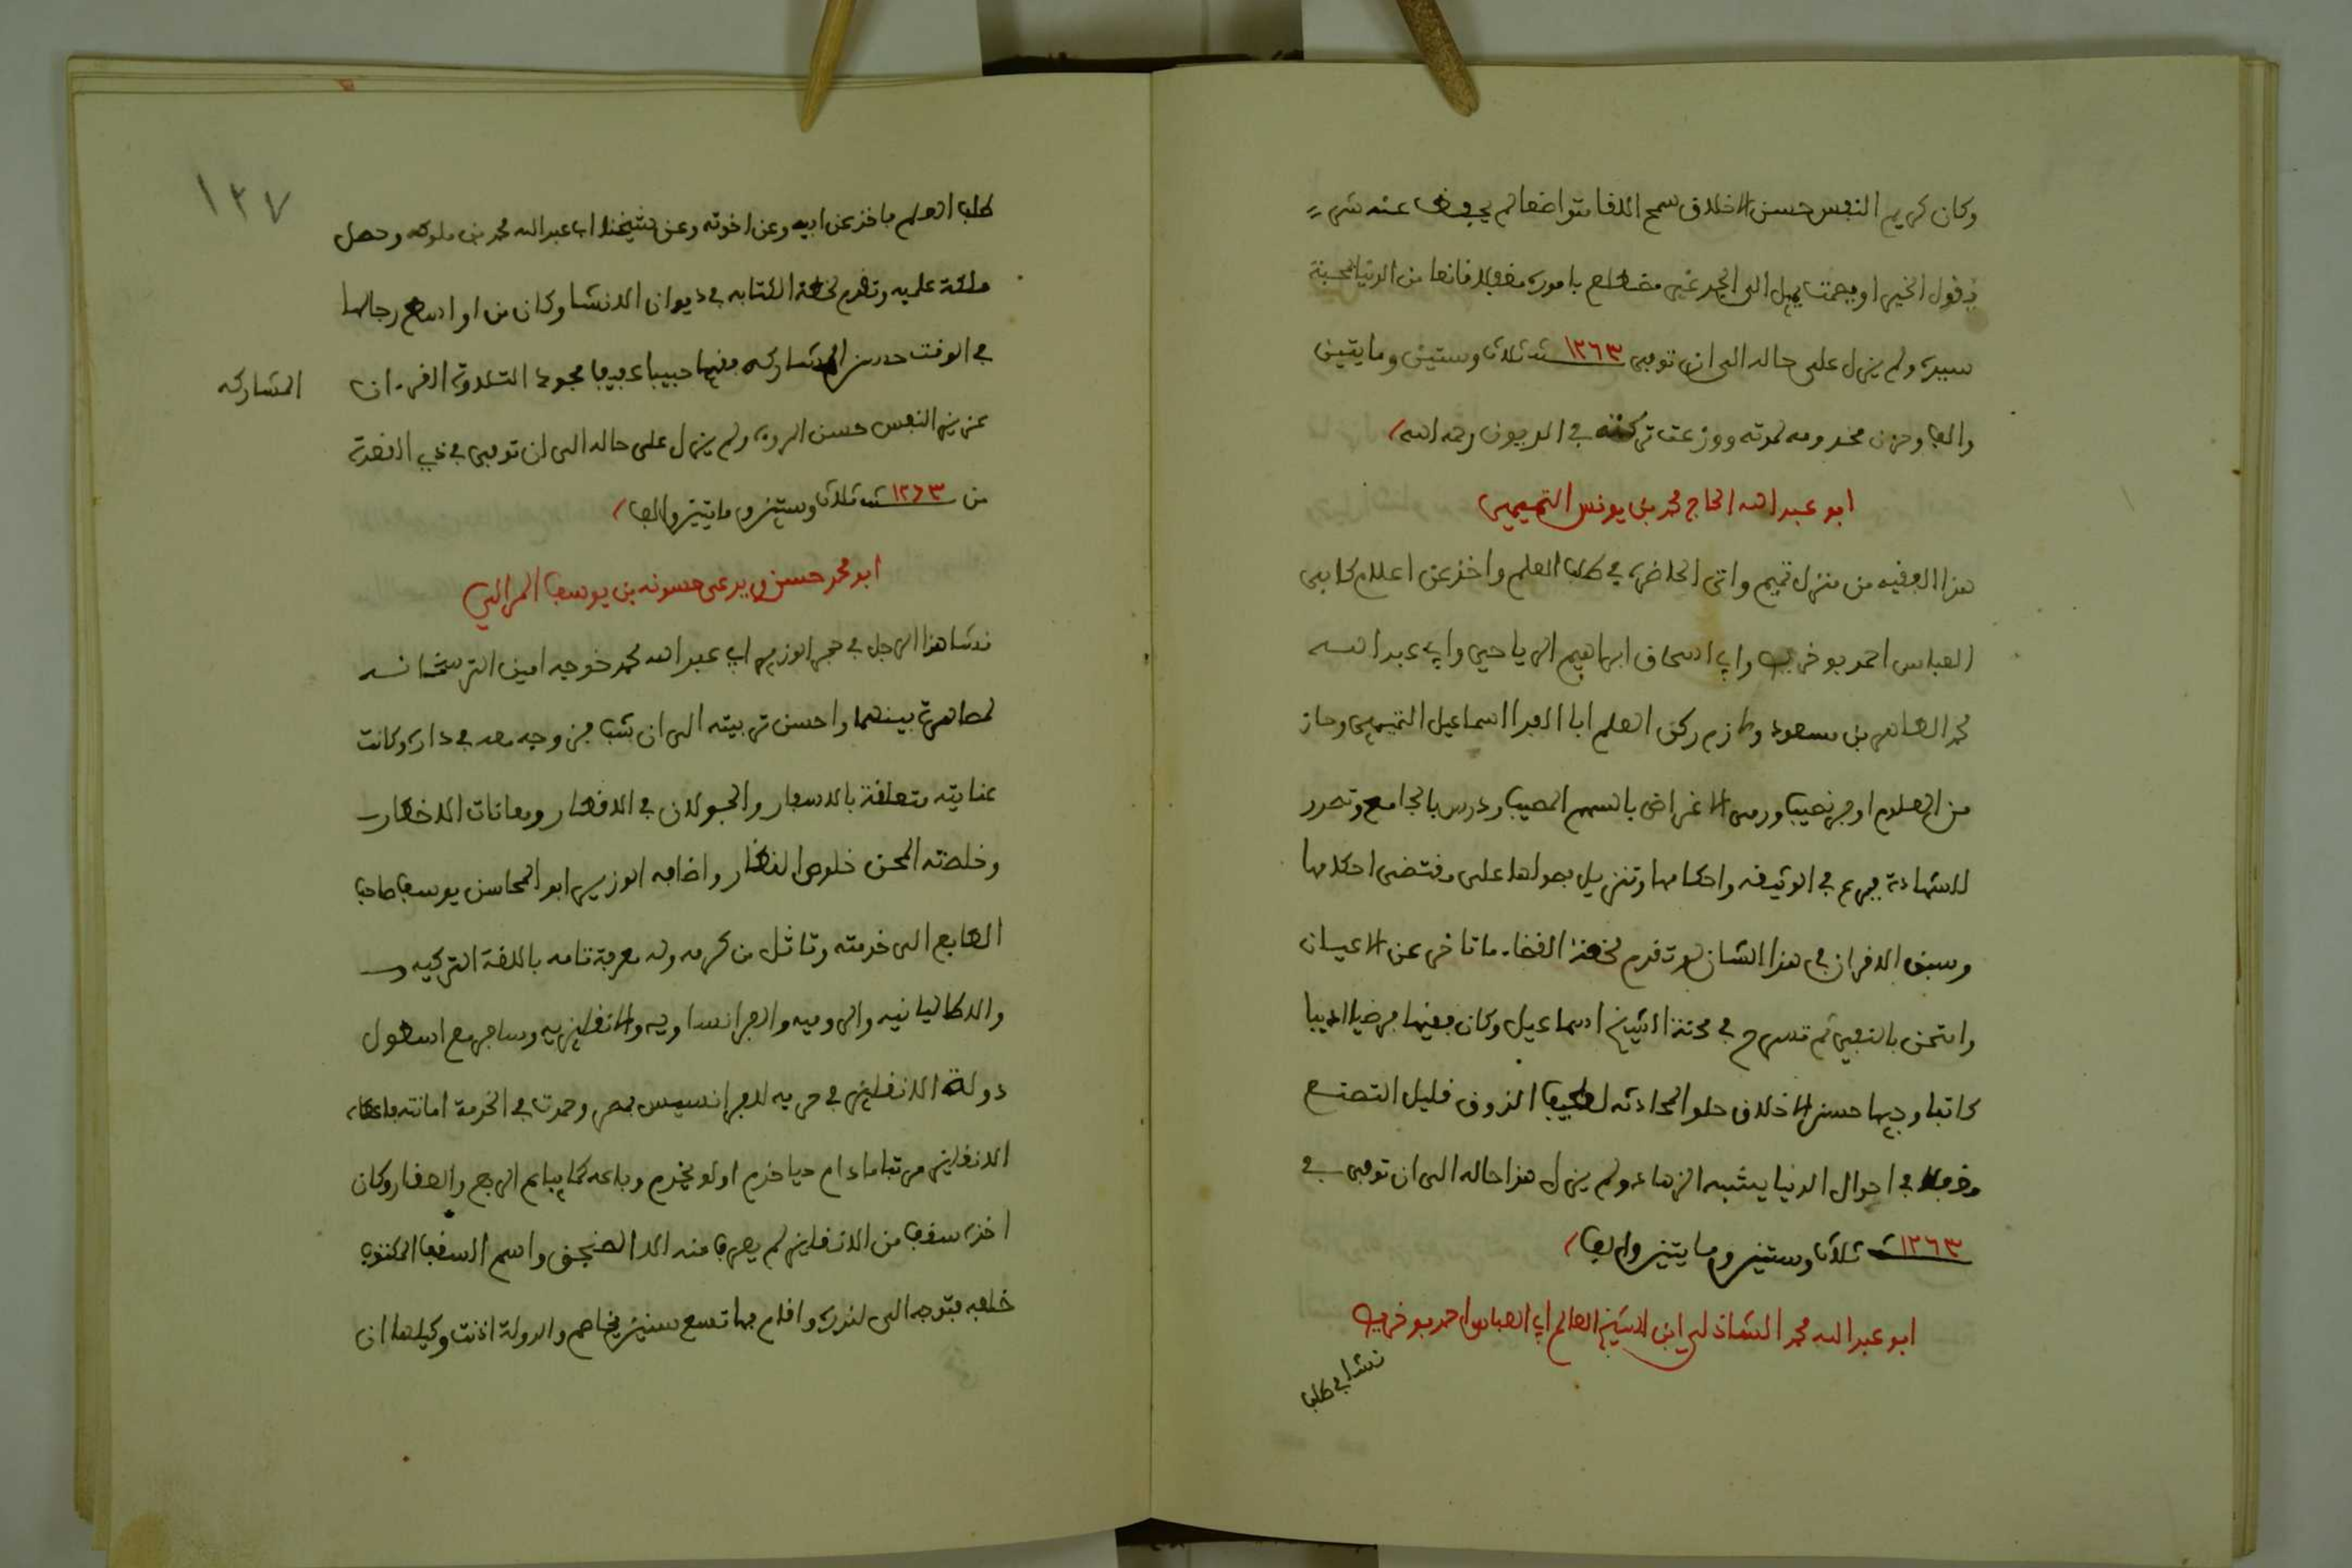 وكان كريم النفس حسن الاخلاق سمح اللقا متواضعا لم يحفظ عنه شي
يقول الخير او يصمت يميل الى الجد غير متطلع بامور مقبلا قانعا من الدنيا بحسنة
سيرة ولم يزل على حاله الى ان توفي ١٢٦٣ سنة ثلاث وستين ومايتين
والف وحزن مخدومه لموته ووزعت تركته في الديون رحمه الله
ابو عبد الله الحاج محمد بن يونس التميمي
هذا الفقيه من منزل تميم واتى الحاضرة في طلب العلم واخذ عن اعلام كابي
العباس احمد بو خريص وابي اسحاق ابراهيم الرياحي وابي عبد الله
محمد الطاهر بن مسعود ولازم ركن العلم ابا الفدا اسماعيل التميمي وحاز
من العلوم اوفر نصيب ورمى الاغراض بالسهم المصيب ودرس بالجامع وتصدر
للشهادة فبرع في الوثيقة واحكامها وتنزيل فصولها على مقتضى احكامها
وسبق الاقران في هذا الشان لو تقدم لخطة القضاء ما تاخر عن الاعيان
وامتحن بالنفي ثم تسرح في محنة الشيخ اسماعيل وكان فقيها فرضيا اديبا
كاتبا وجيها حسن الاخلاق حلو المحادثة لطيف الذوق قليل التصنع
في احوال الدنيا يشبه الزهاد ولم يزل هذا حاله الى ان توفي في
١٢٦٣ سنة ثلاث وستين ومايتين والف
ابو عبد الله محمد الشاذلي ابن الشيخ العالم ابي العباس احمد بو خريص
نشا في طلب
١٣٧
طلب العلم فاخذ عن ابيه وعن اخوته وعن شيخنا ابي عبد الله محمد بن ملوكه وحصل
ملكة علميه وتقدم لخطة الكتابه في ديوان الانشا وكان من اواسط رجالها
في الوقت حسن المشاركه فقيها حبيبا عفيفا مجودا لتلاوة القرءان
المشاركه
عزيز النفس حسن المروءة ولم يزل على حاله الى ان توفي في ذي القعدة
من ١٢٦٣ سنة ثلاث وستين ومايتين والف
ابو محمد حسن ويدعى حسونه بن يوسف المورالي
نشا هذا الرجل في حجر الوزير ابي عبد الله محمد خوجه امين الترسخانه
لمصاهرة بينهما واحسن تربيته الى ان شب فزوجه معه في داره وكانت
عنايته متعلقة بالاسفار والجولان في الاقطار ومعانات الاخطار
وخلصته المحن خلوص النضار واضافه الوزير ابو المحاسن يوسف صاحب
الطابع الى خدمته وتاثل من كرمه وله معرفة تامه باللغة التركيه
والاطاليانيه والروميه والفرانساويه والانقليزيه وسافر مع اسطول
دولة الانقليز في حربه للفرانسيس بمصر وحمدت في الخدمة امانته فاعطاه
الانقليز مرتبا مادام حيا خدم او لم يخدم وباعه كما يباع الربع والعقار وكان
اخذ سقف من الانقليز لم يعرف منه الا الصنجق واسم السقف المكتوب
خلفه فتوجه الى لندره واقام بها تسع سنين يخاصم والدولة اذنت وكيلها ان